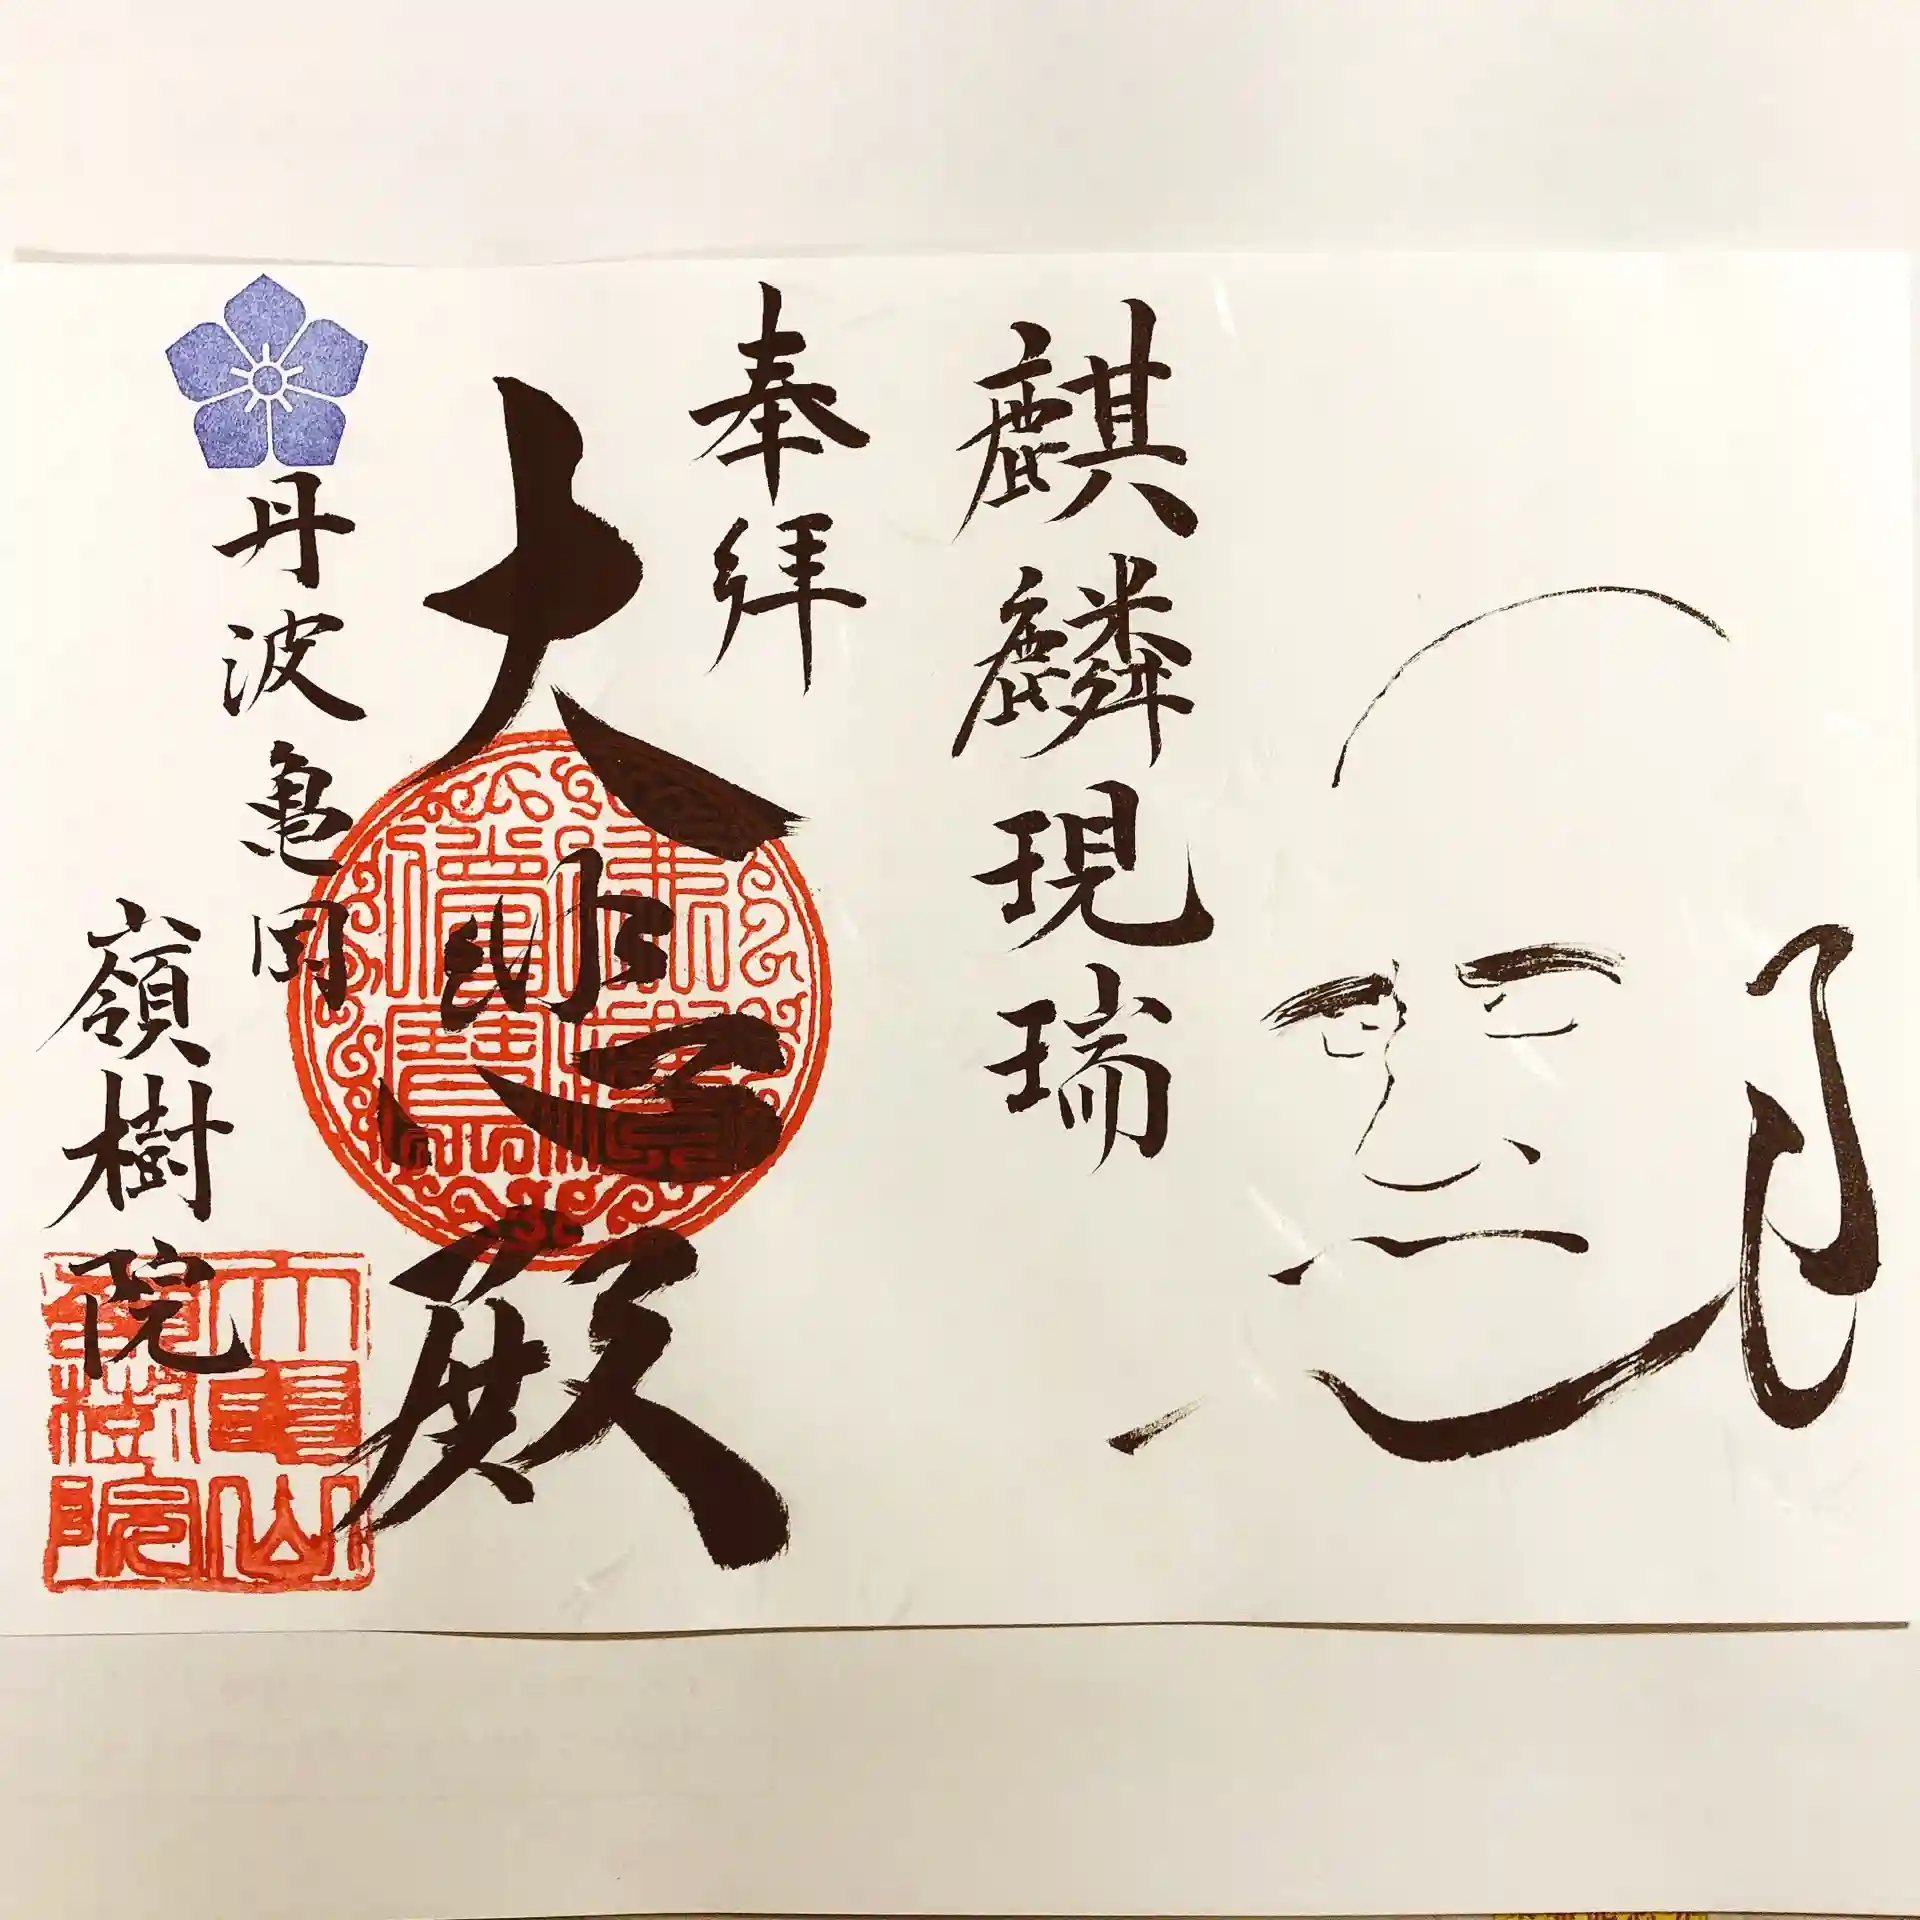 麒麟現瑞
奉拝
大悲殿
丹波亀岡
嶺樹院
大亀山
嶺樹院